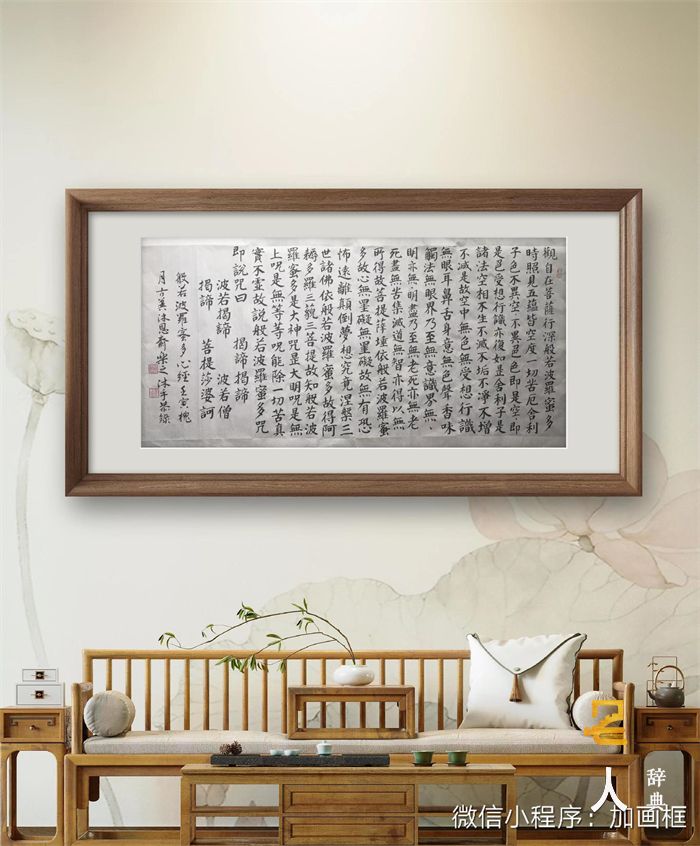 觀自在菩薩行深般若波羅蜜多
時照見五蘊皆空度一切苦厄舍利
子色不異空〻不異色〻即是空〻即
是色受想行識亦復如是舍利子是
諸法空相不生不滅不垢不淨不增
不減是故空中無色無受想行識
無眼耳鼻舌身意無色聲香味
觸法無眼界乃至無意識界無〻
明亦無〻明盡乃至無老死亦無老
死盡無苦集滅道無智亦得以無
所得故菩提薩埵依般若波羅蜜
多故心無罣礙無罣礙故無有恐
怖遠離顛倒夢想究竟涅槃三
世諸佛依般若波羅蜜多故得阿
耨多羅三藐三菩提故知般若波
羅蜜多是大神咒是大明咒是無
上咒是無等等咒能除一切苦真
實不虛故說般若波羅蜜多咒
即說咒曰 揭諦揭諦
波若揭諦 波若僧
揭諦 菩提莎婆訶
般若波羅蜜多心經壬寅槐
月古吴沐恩斋樂之沐手恭錄
人
辞典
微信小程序：加画框